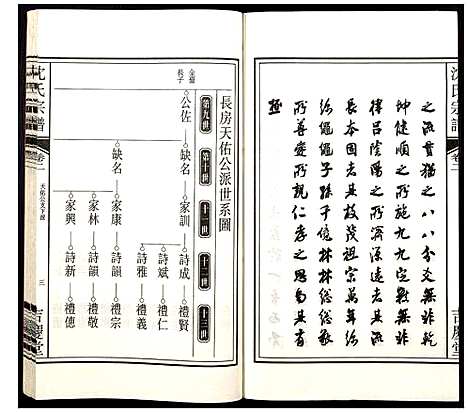 沈氏宗譜
卷二
吉慶堂
之流貫猶之八八爻無非乾
坤健順之所施九九元無非
律呂陰陽之所濟源遠者流
長本固者其枝茂祖宗萬年綿
綿繩繩子孫千億林林總總敬
所尊愛所親仁孝之思旬其有
極
長房天佑公派世系圖
第九世
第十世
十一世
十二世
十三世
公佐
缺名
家訓
詩成
禮賢
詩斌
禮仁
詩雅
禮義
缺名
家康
詩韻
禮宗
家林
詩韻
禮敬
家興
詩新
禮德
沈氏宗譜
卷二
天佑公支下派
三
吉慶堂